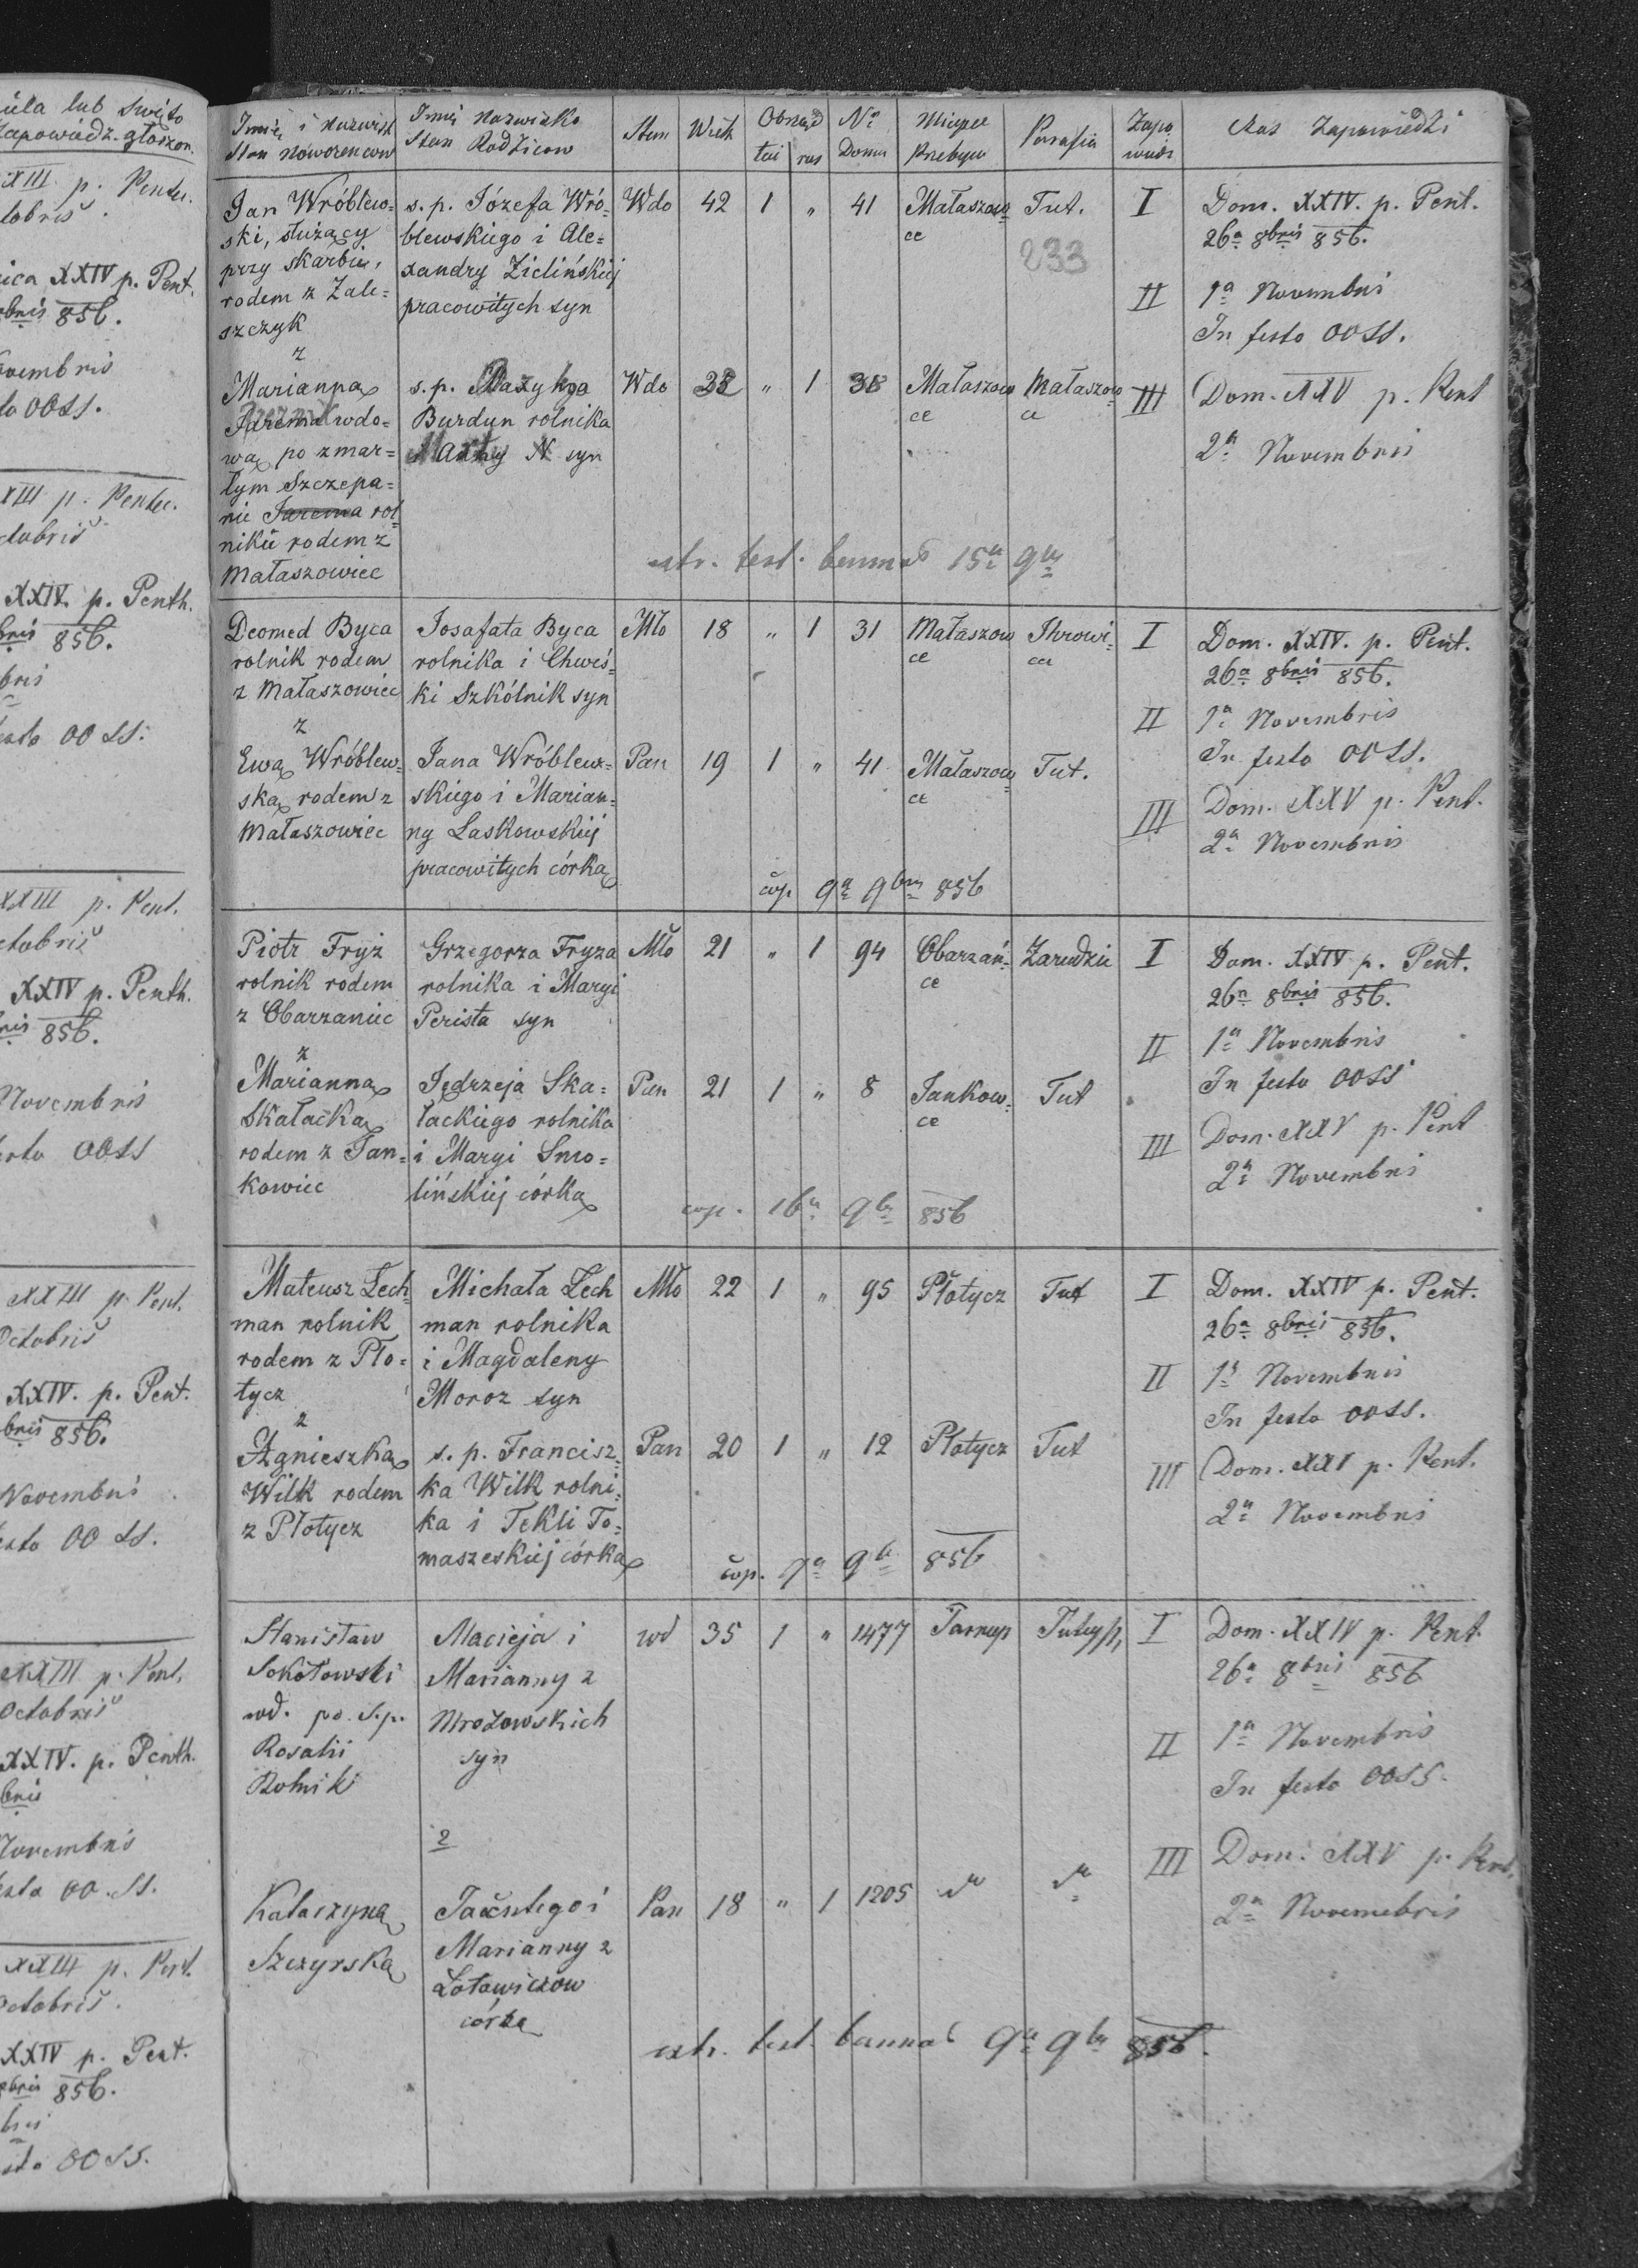 üla lub Swięto
zapowiedz. głoszon.
XIII p. Pentec.
tobris
XXIV p. Pent.
bris 856.
ovembris
to OOSS.
XIII p. Pentec.
ctobris
XXIV. p. Penth.
bris 856.
bris
esto OO SS.
XXIII p. Pent.
ctobris
XXIV p. Penth.
bris 856.
Novembris
esto OOSS
XXIII p. Pent.
Octobris
XXIV. p. Pent.
bris 856.
Novembris
esto OO SS.
XXIII p. Pent.
Octobris
XXIV. p. Penth.
bris
Novembris
esto OO. SS.
XXIII p. Pent.
Octobris.
XXIV p. Pent.
bris 856.
bris
sto OOSS.
Imię i Nazwisk Stan nowozencow
Imię Nazwisko Stan Rodzicow
Stan
Wiek
Obrząd
łai rus
Nr Domu
Miejsce Przebyw
Parafia
Zapowiedz
Czas Zapowiedzi
Jan Wróblew=
ski, służący
przy skarbie,
rodem z Zale=
szczyk
s. p. Józefa Wró=
blewskiego i Ale=
xandry Zielińskiej
pracowitych syn
Wdo 42 1 " 41 Małaszow=
ce
Tut.
233
I Dom. XXIV. p. Pent.
26a 8bris 856.
II 1a Novembris
In festo OOSS.
III Dom. XXV p. Pent
2a Novembris
z
Marianna
Jarema wdo=
wa po zmar=
łym Szczepa=
nie Jarema rol=
niku rodem z
Małaszowiec
s. p.
Burdun rolnika
N syn
Wdo " 1 38 Małaszow
ce
Małaszow=
ce
extr. test. bannor 15a 9br
Deomed Byca
rolnik rodem
z Małaszowiec
Josafata Byca
rolnika i Chweś=
ki Szkólnik syn
Mło 18 " 1 31 Małaszow
ce
Ihrowi=
ca
I Dom. XXIV. p. Pent.
26a 8bris 856.
II 1a Novembris
In festo OOSS.
III Dom. XXV p. Pent.
2a Novembris
z
Ewa Wróblew=
ska rodem z
Małaszowiec
Jana Wróblew=
skiego i Marian=
ny Laskowskiej
pracowitych córka
Pan 19 1 " 41 Małaszow=
ce
Tut.
cop 9a 9bris 856
Piotr Fryz
rolnik rodem
z Obarzaniec
Grzegorza Fryza
rolnika i Maryi
Perista syn
Mło 21 " 1 94 Obarzań=
ce
Zarudzie
I Dom. XXIV p. Pent.
26a 8bris 856.
II 1a Novembris
In festo OOSS
III Dom. XXV p. Pent
2a Novembris
z
Marianna
Skałacka
rodem z Jan=
kowiec
Jędrzeja Ska=
łackiego rolnika
i Maryi Smo=
lińskiej córka
Pan 21 1 " 8 Jankow=
ce
Tut
cop. 16a 9br 856
Mateusz Lech=
man rolnik
rodem z Pło=
tycz
Michała Lech
man rolnika
i Magdaleny
Moroz syn
Mło 22 1 " 95 Płotycz Tut
I Dom. XXIV p. Pent.
26a 8bris 856.
II 1a Novembris
In festo OOSS.
III Dom. XXV p. Pent.
2a Novembris
z
Agnieszka
Wilk rodem
z Płotycz
s. p. Francisz=
ka Wilk rolni=
ka i Tekli To=
maszeskiej córka
Pan 20 1 " 12 Płotycz Tut
cop. 9a 9br 856
Stanisław
Sokołowski
wd. po S.p.
Rosalii
Rolniki
Macieja i
Marianny z
Mrozowskich
syn
wd 35 1 " 1477 Tarnop Tutejsz,
I Dom. XXIV p. Pent.
26a 8bris 856
II 1a Novembris
In festo OOSS.
III Dom. XXV p. Pent.
2a Novemebris
z
Katarzyna
Szczyrska
Jacentego i
Marianny z
Łotowiczow
córka
Pan 18 " 1 1205
extr. test. bannor 9a 9br 856.